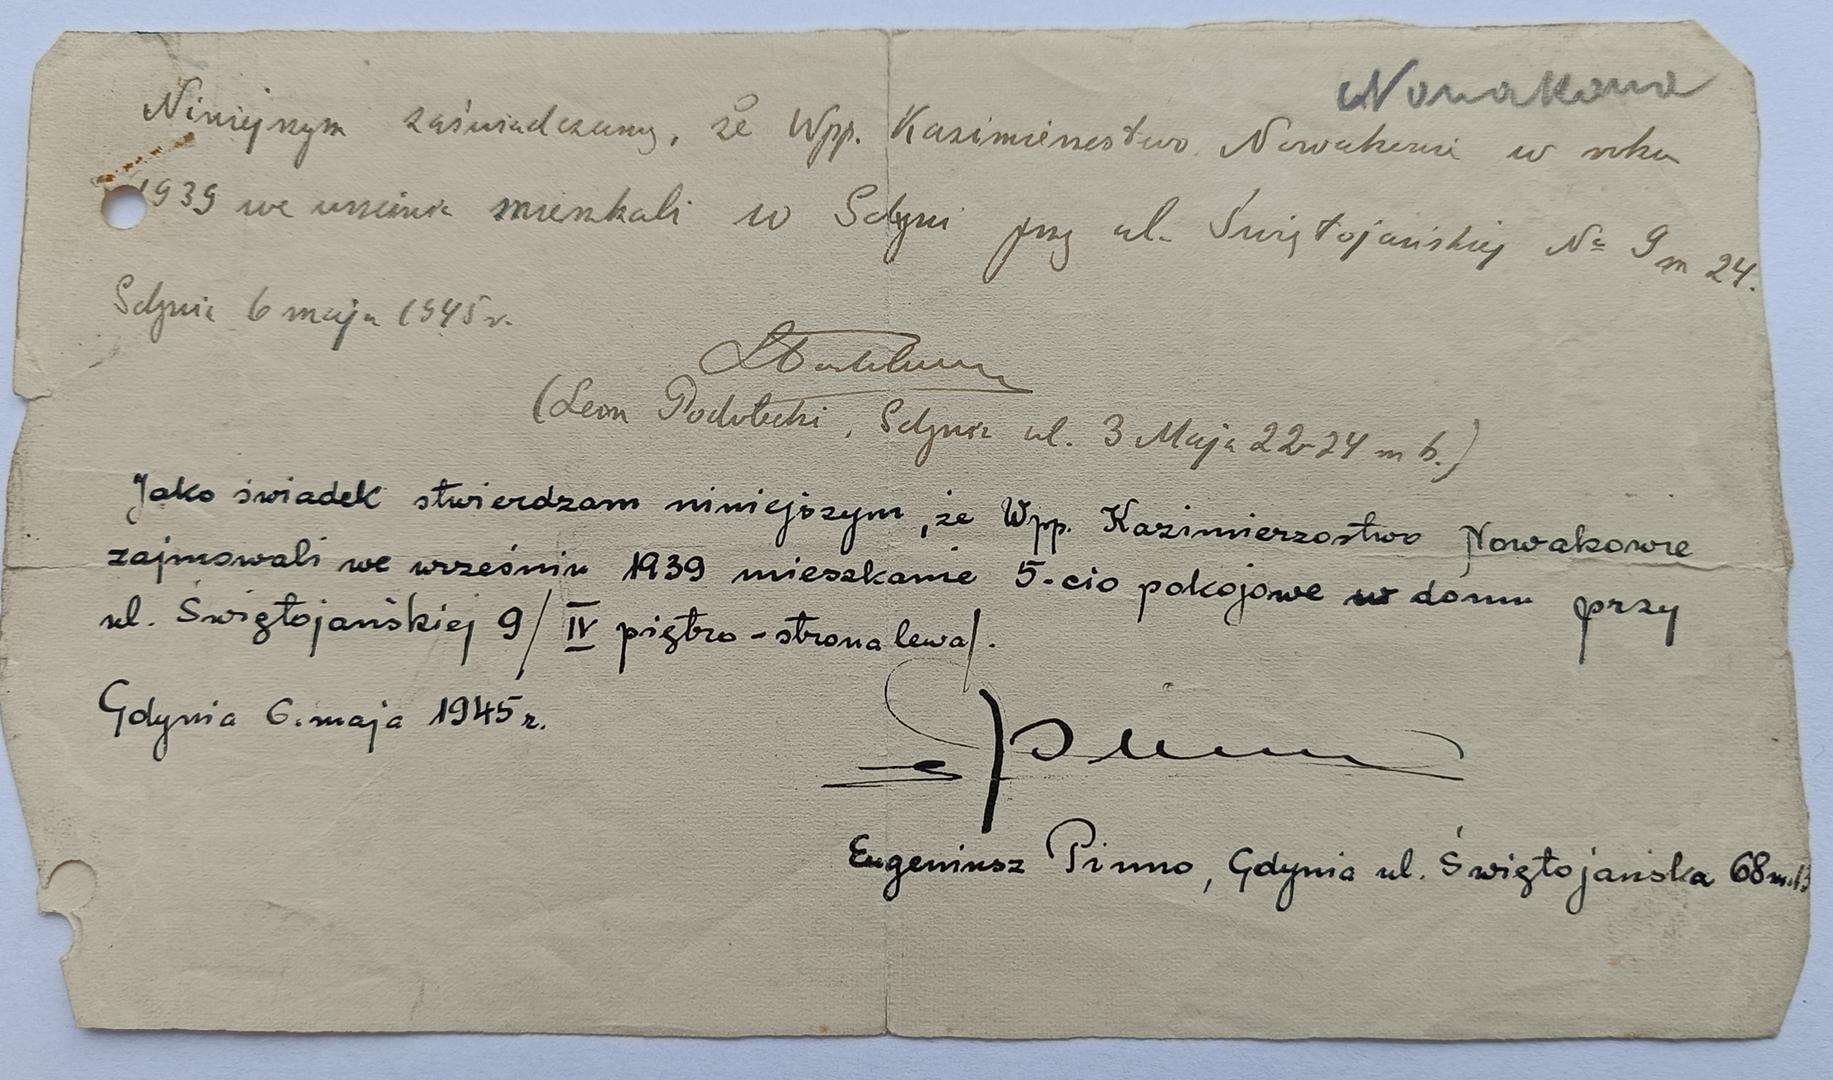 Nowakowa
Niniejszym zaświadczamy, że Wpp. Kazimierzostwo Nowakowie w roku
1939 we wrześniu mieszkali w Gdyni przy ul. Świętojańskiej № 9 m 24.
Gdynia 6 maja 1945 r.
(Leon Podolecki, Gdynia ul. 3 Maja 22-24 m 6.)
Jako świadek stwierdzam niniejszym, że Wpp. Kazimierzostwo Nowakowie
zajmowali we wrześniu 1939 mieszkanie 5-cio pokojowe w domu przy
ul. Świętojańskiej 9/ IV piętro - strona lewa/.
Gdynia 6. maja 1945 r.
Eugeniusz Pinno, Gdynia ul. Świętojańska 68 m.